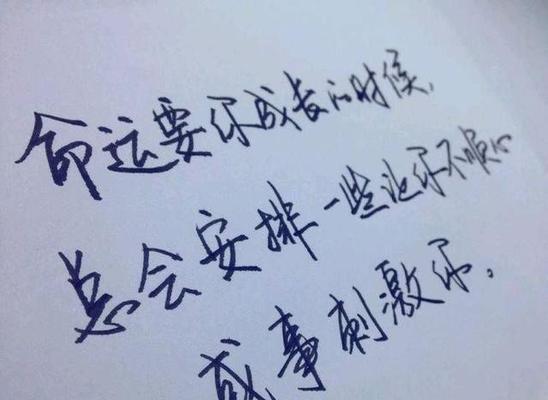 命运要你成长的时候，
总会安排一些让你不顺心
或事刺激你。